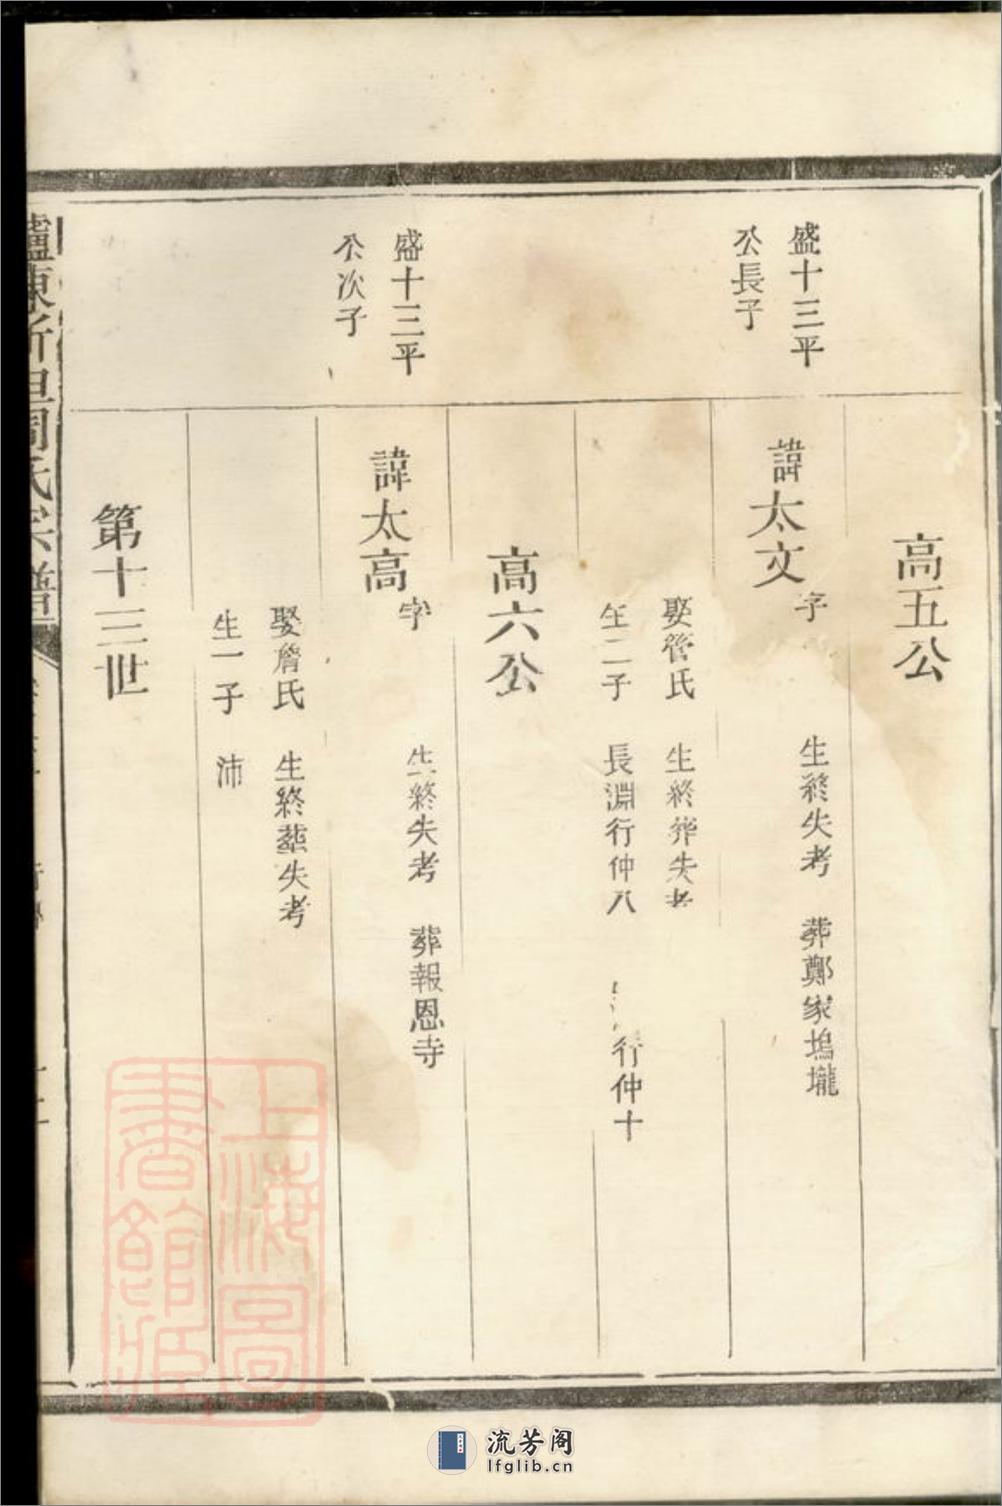 高五公
盛十三平
公長子
諱太文字 生終失考 葬鄭家塢壠
娶管氏 生終葬失考
生二子 長淵行仲八 行仲十
高六公
盛十三平
公次子
諱太高字 生終失考 葬報恩寺
娶詹氏 生終葬失考
生一子 沛
第十三世
周氏宗譜
上海圖
書館藏
流芳阁
lfglib.cn